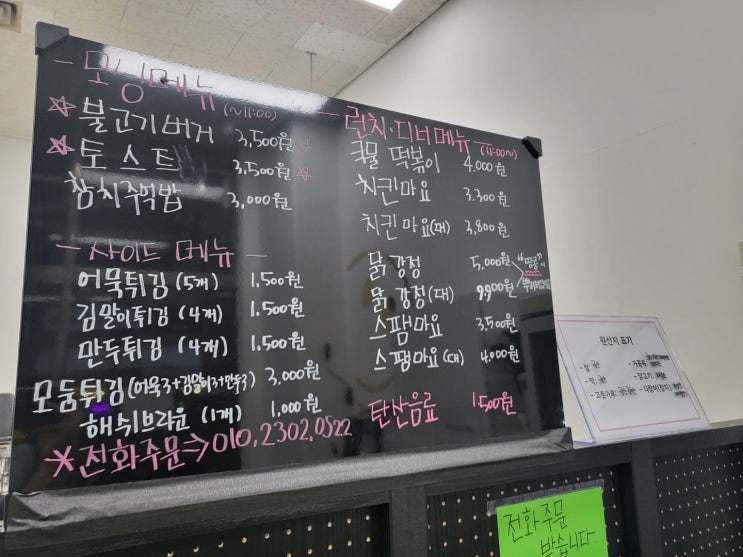 - 모닝메뉴 -
(~11:00)
☆ 불고기버거 3,500원
☆ 토스트 3,500원 ☆
참치주먹밥 3,000원
- 사이드 메뉴 -
어묵튀김 (5개) 1,500원
김말이튀김 (4개) 1,500원
만두튀김 (4개) 1,500원
모둠튀김(어묵3+김말이3+만두3) 3,000원
해쉬브라운 (1개) 1,000원
* 전화주문⇒010.2302.0522
- 런치·디너메뉴 -
(11:00~)
국물 떡볶이 4,000원
치킨마요 3.300원
치킨마요(대) 3,800원
닭강정 5,000원
닭강정(대) 9,900원
"땅콩"이
스팸마요 3,500원
스팸마요(대) 4,000원
탄산음료 1,500원
원산지 표기
- 쌀
- 떡
- 고춧가루
- 닭고기
전화주문
받습니다